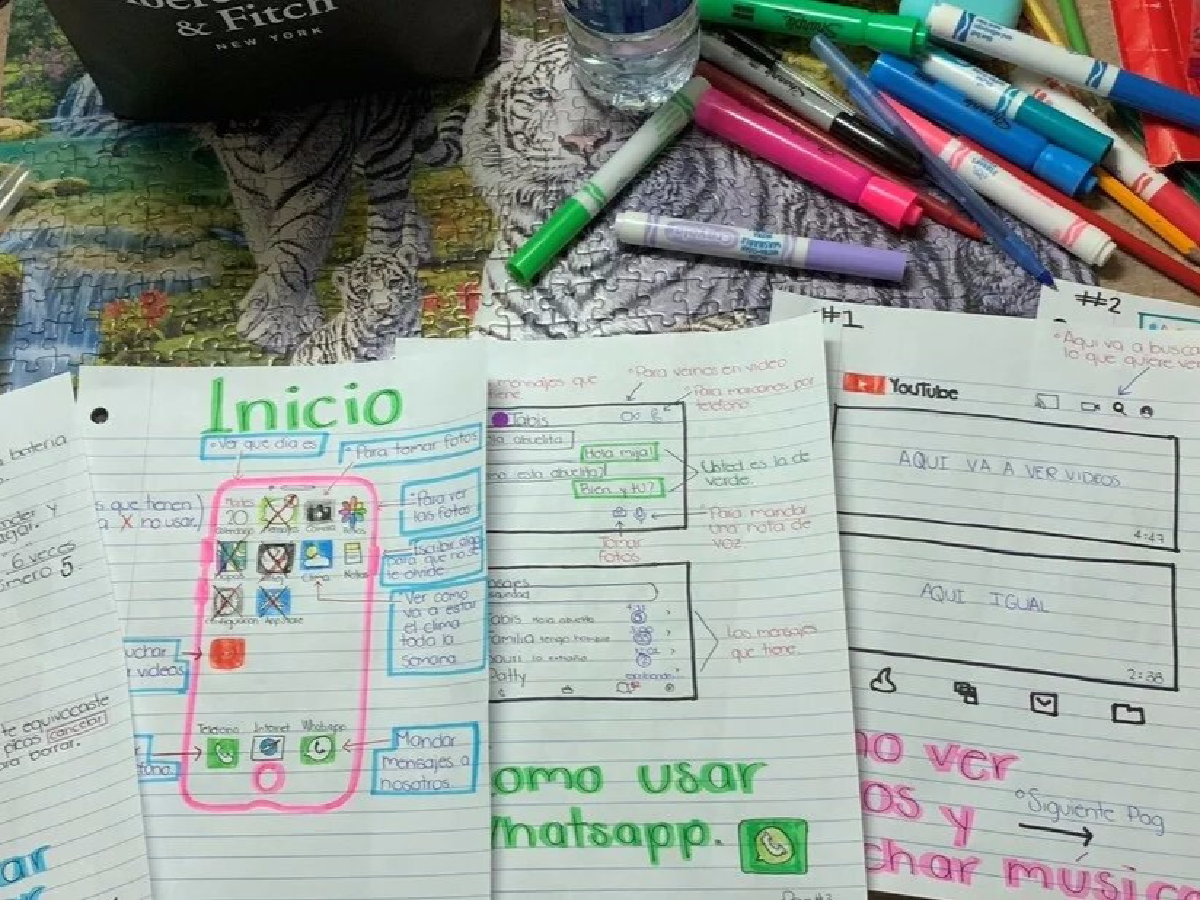 & Fitch
NEW YORK
Sharpie
#1
#2
batería
y
6 veces
5
te equivocaste
picas cancelar
para borrar.
Inicio
• Ver que dia es
• Para tomar fotos
s que tienen)
a X no usar.)
20
• Para ver
las fotos
Mapas
Clima
Notas
Configuracion
App Store
Escribir algo
para que no se
le olvide.
Ver como
va a estar
el clima
toda la
semana.
uchar
videos
Telefono
Internet
Whatsapp
Mandar
mensajes a
nosotros.
mensajes que
tiene
• Para vernos en video
Para marcarnos por
telefono.
Tabis
ola abuelita
Hola mija!
mo esta abuelita?
Bien y tu?
Usted es la de
verde.
Tomar
fotos
Para mandar
una nota de
voz.
Los mensajes
que tiene.
Patty
omo usar
Whatsapp.
• Aqui va a busca
lo que quiere ver
YouTube
AQUI VA A VER VIDEOS
4:47
AQUI IGUAL
2:38
no ver
os y
char músic
• Siguiente Pag